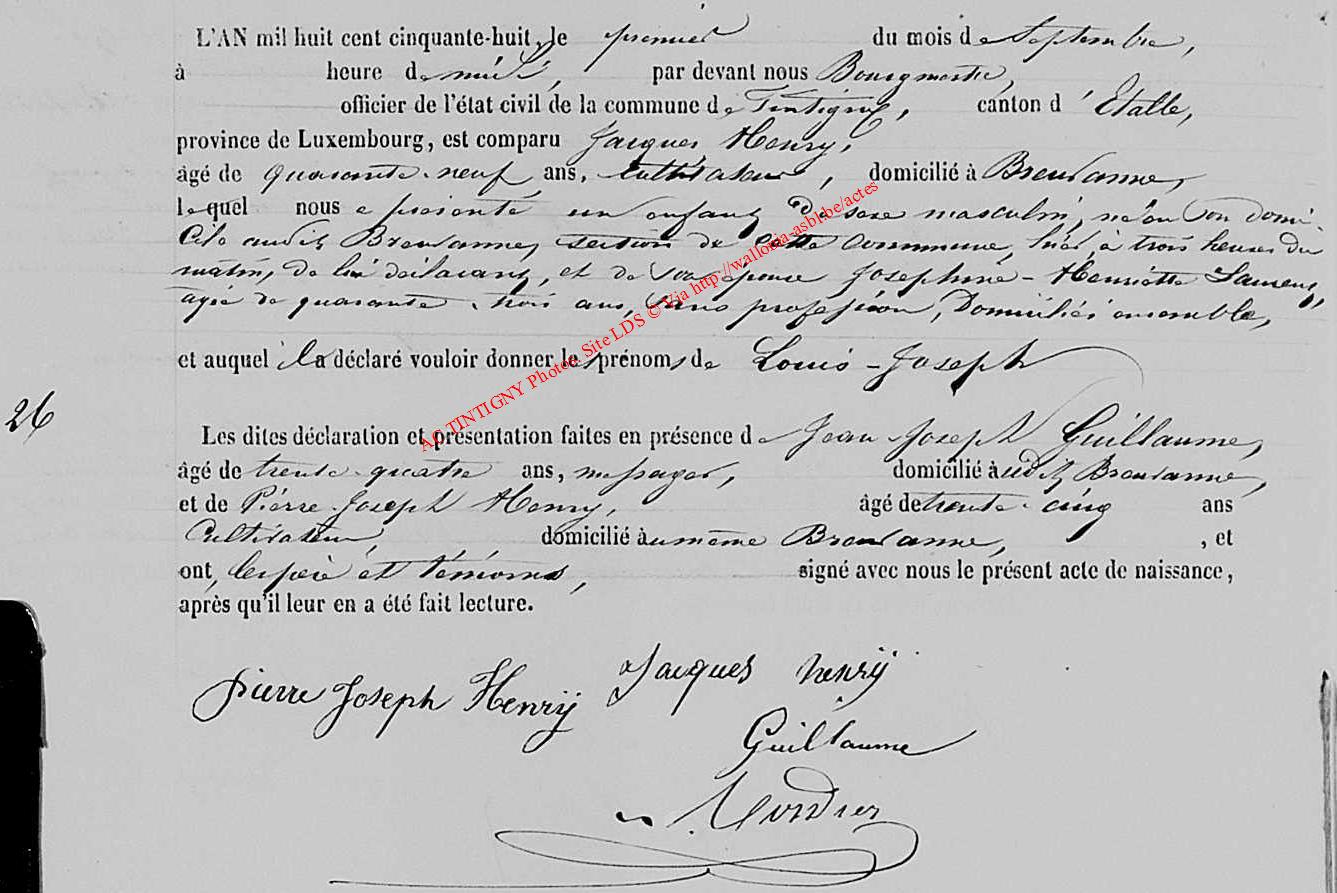 L'AN mil huit cent cinquante-huit, le premier du mois de Septembre,
à heure de midi, par devant nous Bourgmestre,
officier de l'état civil de la commune de Tintigny, canton d'Etalle,
province de Luxembourg, est comparu Jacques Henry,
âgé de quarante-neuf ans, Cultivateur, domicilié à Breuvanne,
lequel nous a présenté un enfant de sexe masculin, né au son domi-
cile audit Breuvanne, section de cette commune, hier à trois heures du
matin, de lui déclarant, et de son épouse Josephine-Henriette Laurent,
agée de quarante-trois ans, sans profession, Domiciliés ensemble,
et auquel il a déclaré vouloir donner les prénoms de Louis-Joseph
26
Les dites déclaration et présentation faites en présence de Jean-Joseph Guillaume,
âgé de trente-quatre ans, messager, domicilié audit Breuvanne,
et de Pierre-Joseph Henry, âgé de trente-cinq ans
Cultivateur, domicilié au même Breuvanne, , et
ont, les père et témoins, signé avec nous le présent acte de naissance,
après qu'il leur en a été fait lecture.
pierre Joseph Henrÿ Jacques henrÿ
Guillaume
AC TINTIGNY Photos. Site LDS © Via http://wallonia-asbl.be/actes